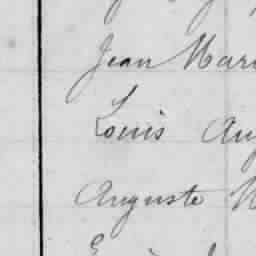 Jean Mari
Louis Aug
Auguste